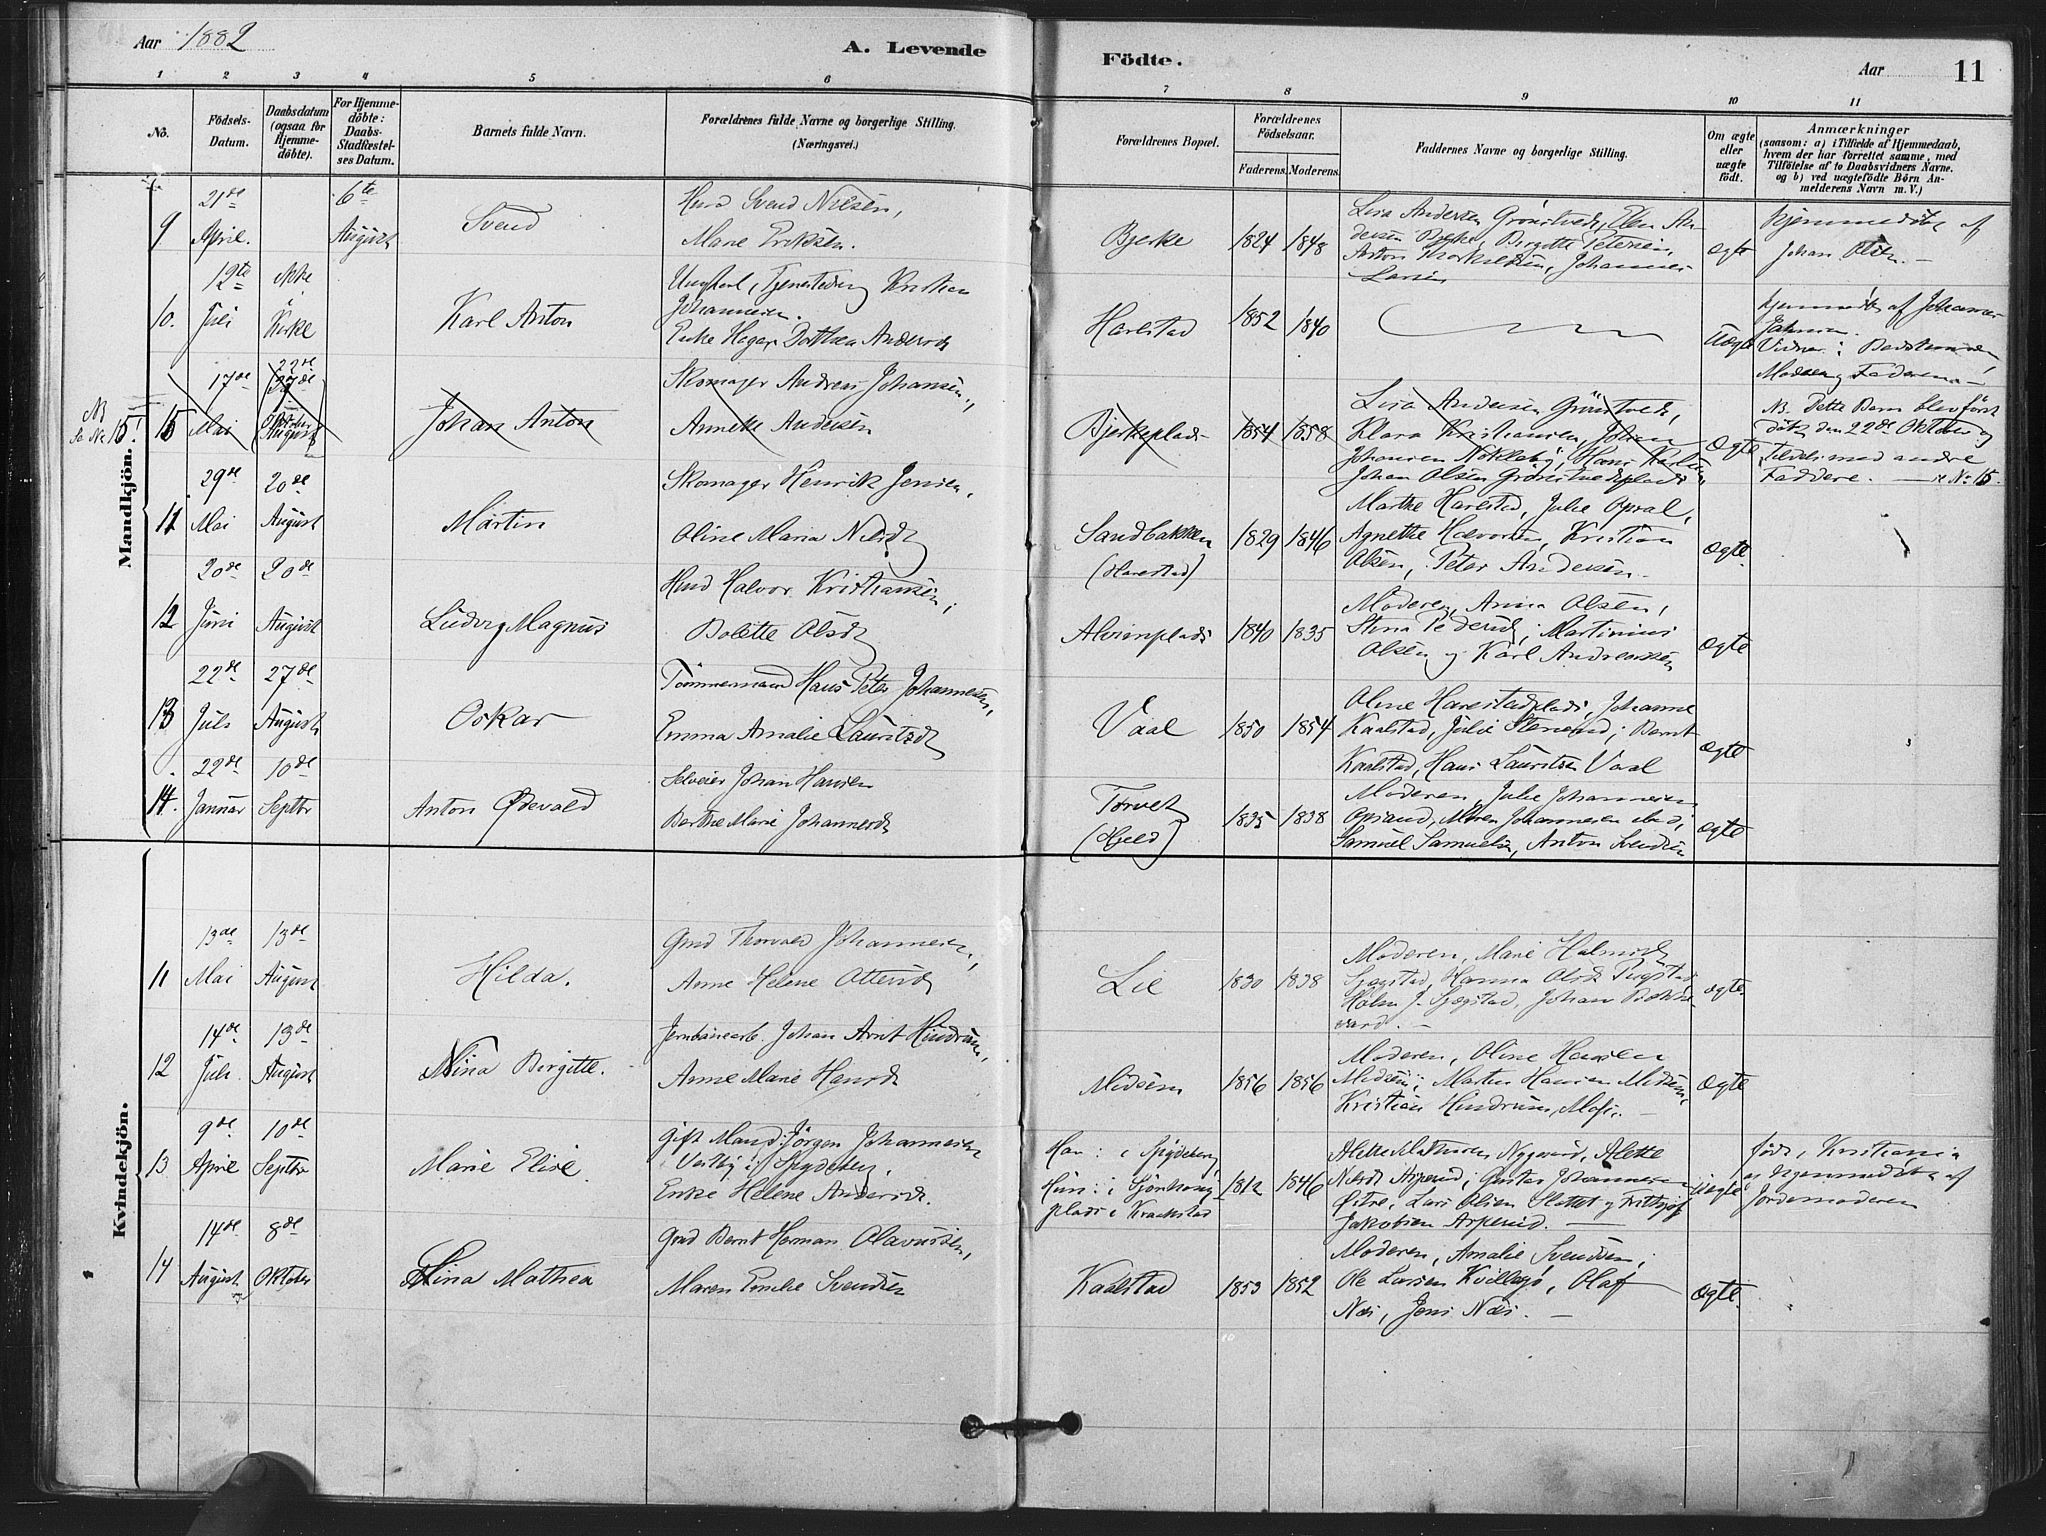 Aar 1882
A. Levende
Födte.
Aar
11
1 2 3 4 5 6 7 8 9 10 11
No.
Födsels-Datum.
Daabsdatum (ogsaa for Hjemmedöbte).
For Hjemmedöbte: Daabs-Stadfæstelses Datum.
Barnets fulde Navn.
Forældrenes fulde Navne og borgerlige Stilling. (Næringsvei.)
Forældrenes Bopæl.
Forældrenes Födselsaar.
Faderens. Moderens.
Faddernes Navne og borgerlige Stilling.
Om ægte eller uægte födt.
Anmærkninger
(saasom: a) i Tilfælde af Hjemmedaab,
hvem der har forrettet samme, med
Tilföielse af to Daabsvidners Navne.
og b) ved uægtefödte Börn An-
melderens Navn m. V.)
Mandkjön.
9 21de April. 6te August Svend
Svend Nilsen,
Marie Eriksen.
Bjerke 1824 1848
Lisa Andersen Grönstvedt, Ellen An-
dersen Bjerke, Birgitte Petersen,
Anton Thorkildsen, Johannes
Larsen
Ægte
Hjemmedöbt af
Johan Olsen.
10. 12te Juli ikke i Kirke Karl Anton
Ungkarl, Tjenestedreng Kristian
Johannesen.
Enke Hagar Dorthea Andersdt
Harestad 1852 1840 Uægte
hjemmedöbt af Johannes
Vidner: Bedstemoderen,
Moderen og Faderen
NB Se No 15!
15 17de Mai 22de 27de Oktober August Johan Anton
Skomager Andreas Johansen,
Annette Andersen
Bjerkeplads 1854 1858
Lisa Andersen Grönstvedt,
Klara Kristiansen, Johan
Johansen Nökleby, Hans Karlsen,
Johan Olsen Grönstvedtplads
Ægte
NB. Dette Barn blev först
döbt den 22de Oktober og
tildels med andre
Faddere. — No 15.
11 29de Mai 20de August Martin
Skomager Henrik Jensen,
Oline Maria Nilsdt
Sandbakken (Harestad) 1829 1846
Marthe Harestad, Julie Opsal,
Agnethe Halvorsen, Kristian
Olsen, Peter Andersen.
Ægte.
12 20de Juni 20de August Ludvig Magnus
Halvor Kristiansen,
Bolette Olsdt
1840 1835
Moderen, Anna Olsen,
Stina Pedersdt, Martinius
Olsen og Karl Andreassen
Ægte
13 22de Juli 27de August Oskar
Tömmermand Hans Peter Johannesen,
Emma Amalie Lauritzdt
Vaal 1850 1854
Oline Harestadplads, Johanne
Kaalstad, Julie Stensrud, Bernt
Kaalstad, Hans Lauritsen Vaal
Ægte
14. 22de Januar 10de Septbr Anton Ödevald
Selveier Johan Hansen
Berthe Marie Johannesdt
Torvet (Hjeld) 1835 1838
Moderen, Julie Johannesen
Opsand, Maren Johannesen ibid,
Samuel Samuelsen, Anton Svendsen
Ægte
Kvindekjön.
11 13de Mai 13de August Hilda.
Gmd Thorvald Johannesen,
Anne Helene Ottersdt
Lie 1830 1838
Moderen, Marie Holmsdt
Sjægstad, Hanna Olsdt Sjægstad,
Holm J. Sjægstad, Johan
Ægte.
12 14de Juli 13de August Nina Birgitte.
Jernbanearb. Johan Arnt Hindrum,
Anne Marie Hansdt
Midsem 1856 1856
Moderen, Oline Hansen
Midsem, Martin Hansen Midsem,
Kristian Hindrum, Moss.
Ægte
13 9de April 10de Septbr Marie Elise
Gift Mand Jörgen Johannesen
Vestby i Spydeberg.
Enke Helene Andersdt.
Han: i Spydeberg
Hun: i
plads i Kraakstad
1812 1846
Alette Mathesen Nygaard, Alette
Nilsdt Arperud, Gustav Johannesen
Östre, Lars Olsen Slottet og Fritthjof
Jakobsen Arperud.
Uægte
födt i Kristiania
og hjemmedöbt af
Jordemoderen
14 14de August 8de Oktober Stina Mathea
Gmd Bernt Herman Olavessen,
Maren Emilie Svendsen
Kaalstad 1853 1852
Moderen, Amalie Svendsen,
Ole Larsen Kvillesjö, Olaf
Næs, Jens Næs.
Ægte.